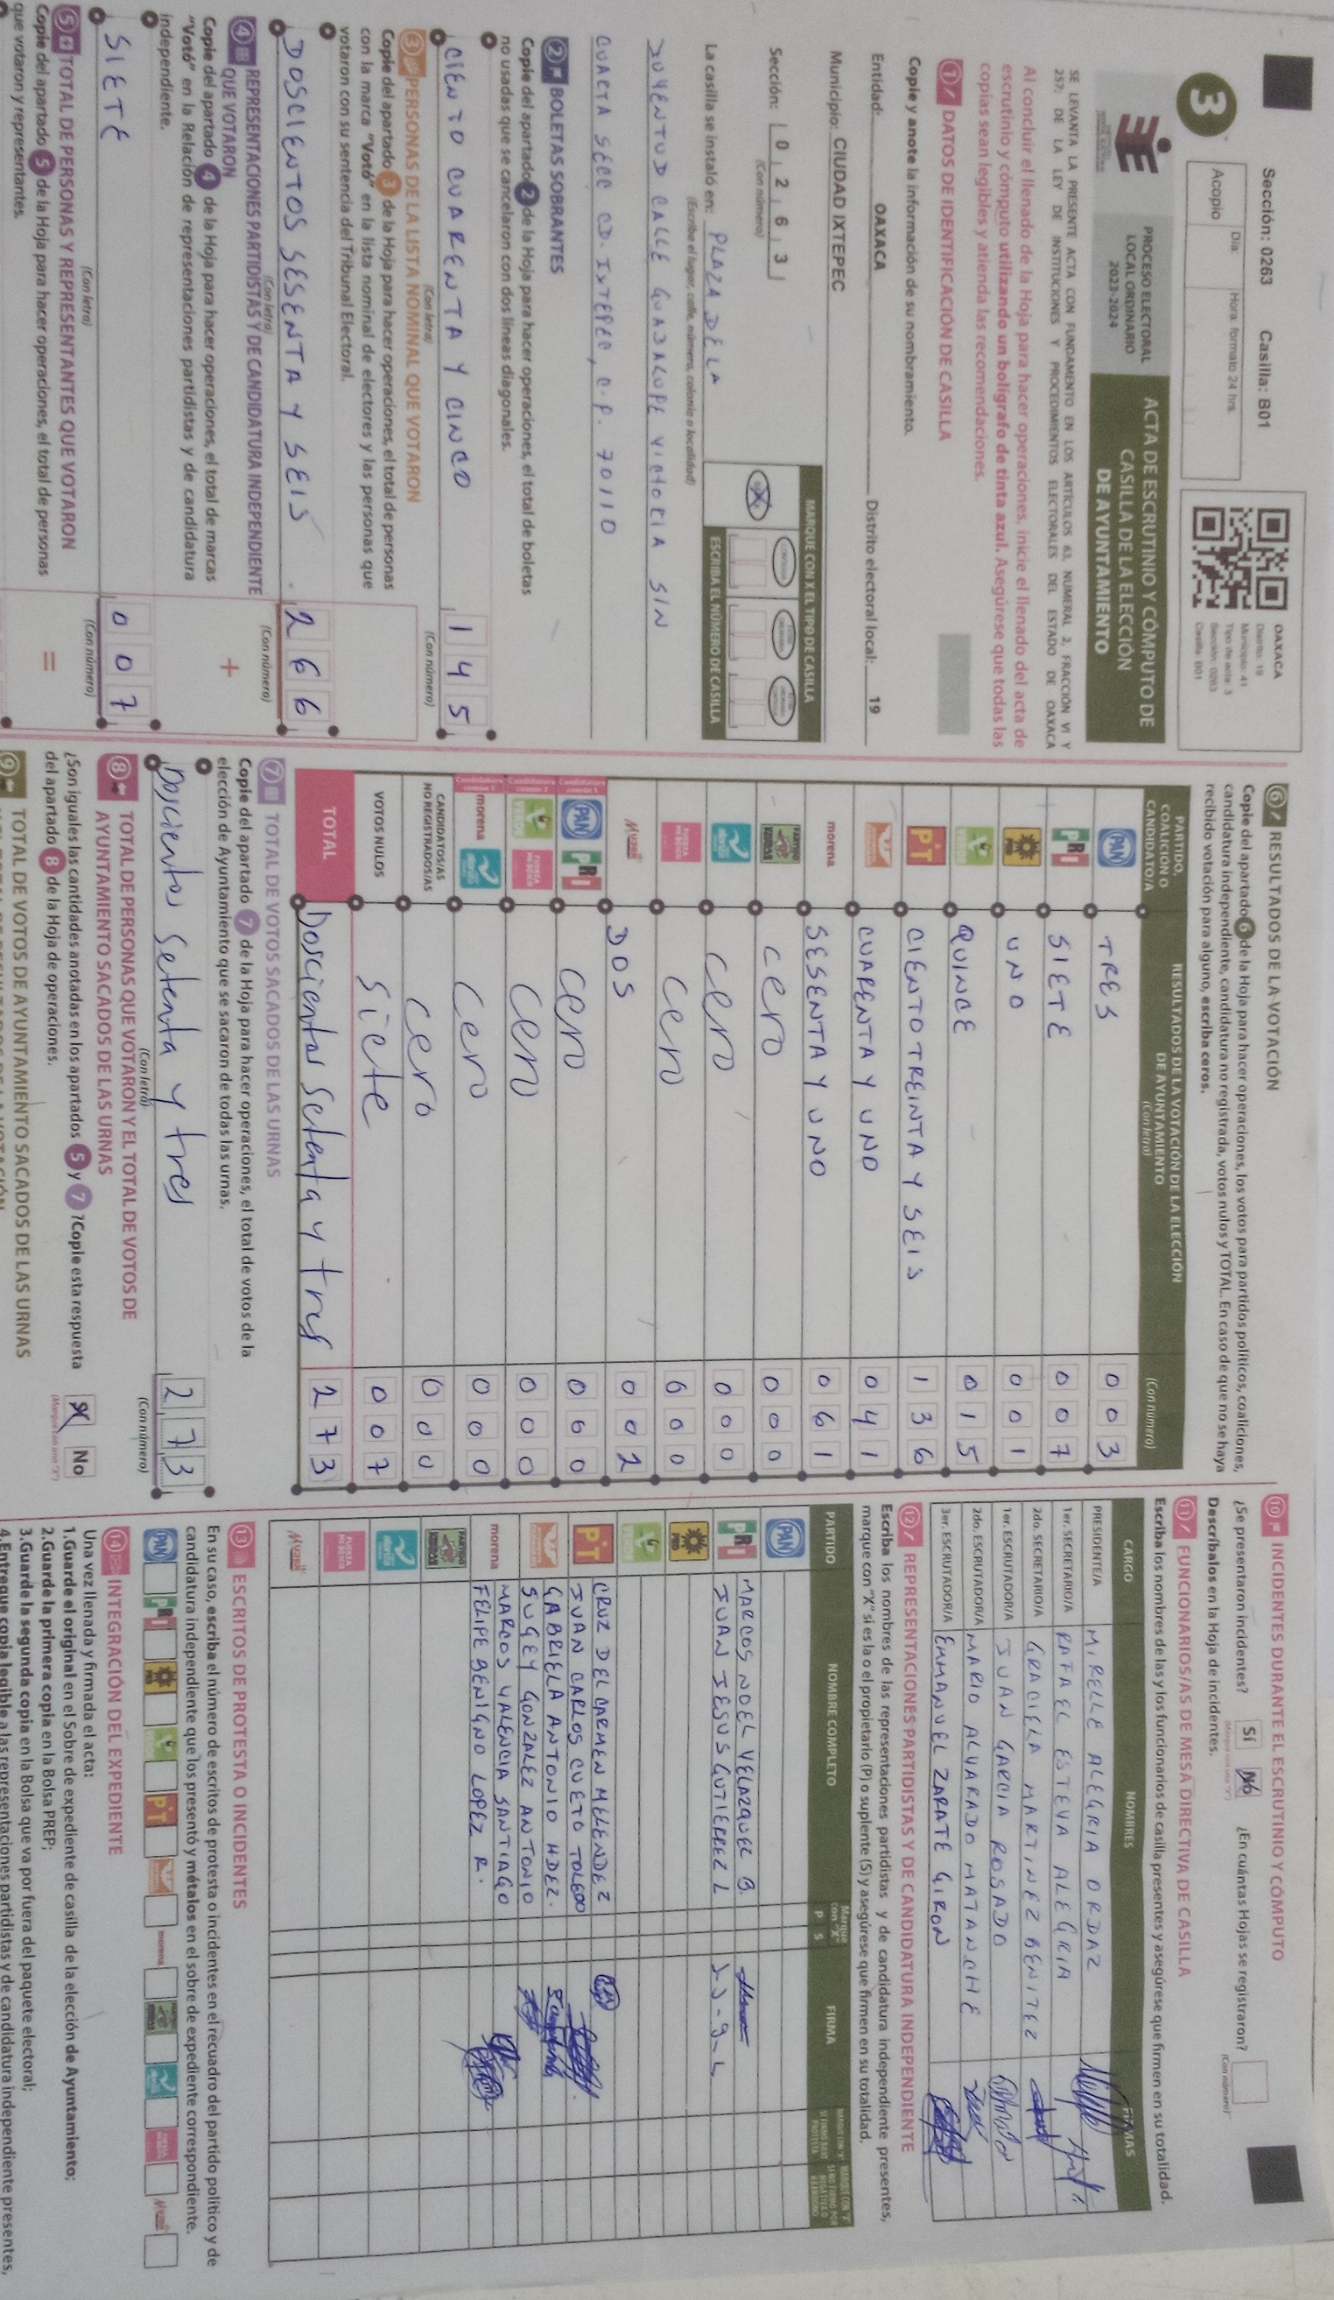 Sección: 0263 Casilla: B01
3
Día: Hora: formato 24 hrs.
Acopio
OAXACA
Distrito: 19
Municipio: 41
Tipo de acta: 3
Sección: 0263
Casilla: B01
PROCESO ELECTORAL
LOCAL ORDINARIO
2023-2024
ACTA DE ESCRUTINIO Y CÓMPUTO DE
CASILLA DE LA ELECCIÓN
DE AYUNTAMIENTO
SE LEVANTA LA PRESENTE ACTA CON FUNDAMENTO EN LOS ARTÍCULOS 63, NUMERAL 2, FRACCIÓN VI Y
257; DE LA LEY DE INSTITUCIONES Y PROCEDIMIENTOS ELECTORALES DEL ESTADO DE OAXACA
Al concluir el llenado de la Hoja para hacer operaciones, inicie el llenado del acta de
escrutinio y cómputo utilizando un bolígrafo de tinta azul. Asegúrese que todas las
copias sean legibles y atienda las recomendaciones.
1 DATOS DE IDENTIFICACIÓN DE CASILLA
Copie y anote la información de su nombramiento.
Entidad: OAXACA Distrito electoral local: 19
Municipio: CIUDAD IXTEPEC
Sección: 0 2 6 3
(Con número)
MARQUE CON X EL TIPO DE CASILLA
ESCRIBA EL NÚMERO DE CASILLA
La casilla se instaló en: PLAZA DE LA
(Escriba el lugar, calle, número, colonia o localidad)
JUVENTUD CALLE GUADALUPE VICTORIA SIN
CUARTA SECC CD. IXTEPEC, C.P. 70110
2 BOLETAS SOBRANTES
Copie del apartado 2 de la Hoja para hacer operaciones, el total de boletas
no usadas que se cancelaron con dos líneas diagonales.
CIENTO CUARENTA Y CINCO 1 4 5
(Con letra) (Con número)
3 PERSONAS DE LA LISTA NOMINAL QUE VOTARON
Copie del apartado 3 de la Hoja para hacer operaciones, el total de personas
con la marca "Votó" en la lista nominal de electores y las personas que
votaron con su sentencia del Tribunal Electoral.
DOSCIENTOS SESENTA Y SEIS 2 6 6
(Con letra) (Con número)
4 REPRESENTACIONES PARTIDISTAS Y DE CANDIDATURA INDEPENDIENTE
QUE VOTARON
+
Copie del apartado 4 de la Hoja para hacer operaciones, el total de marcas
"Votó" en la Relación de representaciones partidistas y de candidatura
independiente.
SIETE 0 0 7
(Con letra) (Con número)
5 TOTAL DE PERSONAS Y REPRESENTANTES QUE VOTARON
=
Copie del apartado 5 de la Hoja para hacer operaciones, el total de personas
que votaron y representantes.
6 RESULTADOS DE LA VOTACIÓN
Copie del apartado 6 de la Hoja para hacer operaciones, los votos para partidos políticos, coaliciones,
candidatura independiente, candidatura no registrada, votos nulos y TOTAL. En caso de que no se haya
recibido votación para alguno, escriba ceros.
PARTIDO,
COALICIÓN O
CANDIDATO/A
RESULTADOS DE LA VOTACIÓN DE LA ELECCIÓN
DE AYUNTAMIENTO
(Con letra) (Con número)
PAN TRES 0 0 3
PRI SIETE 0 0 7
PRD UNO 0 0 1
VERDE QUINCE 0 1 5
PT CIENTO TREINTA Y SEIS 1 3 6
CUARENTA Y UNO 0 4 1
morena SESENTA Y UNO 0 6 1
cero 0 0 0
cero 0 0 0
cero 0 0 0
DOS 0 0 2
PAN PRI cero 0 0 0
VERDE cero 0 0 0
morena cero 0 0 0
CANDIDATOS/AS
NO REGISTRADOS/AS cero 0 0 0
VOTOS NULOS siete 0 0 7
TOTAL Doscientos setenta y tres 2 7 3
7 TOTAL DE VOTOS SACADOS DE LAS URNAS
Copie del apartado 7 de la Hoja para hacer operaciones, el total de votos de la
elección de Ayuntamiento que se sacaron de todas las urnas.
Doscientos setenta y tres 2 7 3
(Con letra) (Con número)
8 TOTAL DE PERSONAS QUE VOTARON Y EL TOTAL DE VOTOS DE
AYUNTAMIENTO SACADOS DE LAS URNAS
¿Son iguales las cantidades anotadas en los apartados 5 y 7 ? Copie esta respuesta
del apartado 8 de la Hoja de operaciones.
No
9 TOTAL DE VOTOS DE AYUNTAMIENTO SACADOS DE LAS URNAS
10 INCIDENTES DURANTE EL ESCRUTINIO Y CÓMPUTO
¿Se presentaron incidentes? Sí No ¿En cuántas Hojas se registraron?
(Con número)
Descríbalos en la Hoja de incidentes.
11 FUNCIONARIOS/AS DE MESA DIRECTIVA DE CASILLA
Escriba los nombres de las y los funcionarios de casilla presentes y asegúrese que firmen en su totalidad.
CARGO NOMBRES FIRMAS
PRESIDENTE/A MIRELLE ALEGRIA ORDAZ
1er. SECRETARIO/A RAFAEL ESTEVA ALEGRIA
2do. SECRETARIO/A GRACIELA MARTINEZ BENITEZ
1er. ESCRUTADOR/A JUAN GARCIA ROSADO
2do. ESCRUTADOR/A MARIO ALVARADO MATANCHE
3er. ESCRUTADOR/A EMMANUEL ZARATE GIRON
12 REPRESENTACIONES PARTIDISTAS Y DE CANDIDATURA INDEPENDIENTE
Escriba los nombres de las representaciones partidistas y de candidatura independiente presentes,
marque con "X" si es la o el propietario (P) o suplente (S) y asegúrese que firmen en su totalidad.
PARTIDO NOMBRE COMPLETO Marque con "X" P S FIRMA
PAN
MARCOS NOEL VELAZQUEZ B.
PRI JUAN JESUS GUTIERREZ L
PRD
VERDE
CRUZ DEL CARMEN MELENDEZ
PT JUAN CARLOS CUETO TOLEDO
GABRIELA ANTONIO HDEZ.
SUGEY GONZALEZ ANTONIO
morena MARCOS VALENCIA SANTIAGO
FELIPE BENIGNO LOPEZ R.
13 ESCRITOS DE PROTESTA O INCIDENTES
En su caso, escriba el número de escritos de protesta o incidentes en el recuadro del partido político y de
candidatura independiente que los presentó y métalos en el sobre de expediente correspondiente.
PAN PRI PRD VERDE PT morena
14 INTEGRACIÓN DEL EXPEDIENTE
Una vez llenada y firmada el acta:
1.Guarde el original en el Sobre de expediente de casilla de la elección de Ayuntamiento;
2.Guarde la primera copia en la Bolsa PREP;
3.Guarde la segunda copia en la Bolsa que va por fuera del paquete electoral;
4.Entregue copia legible a las representaciones partidistas y de candidatura independiente presentes,